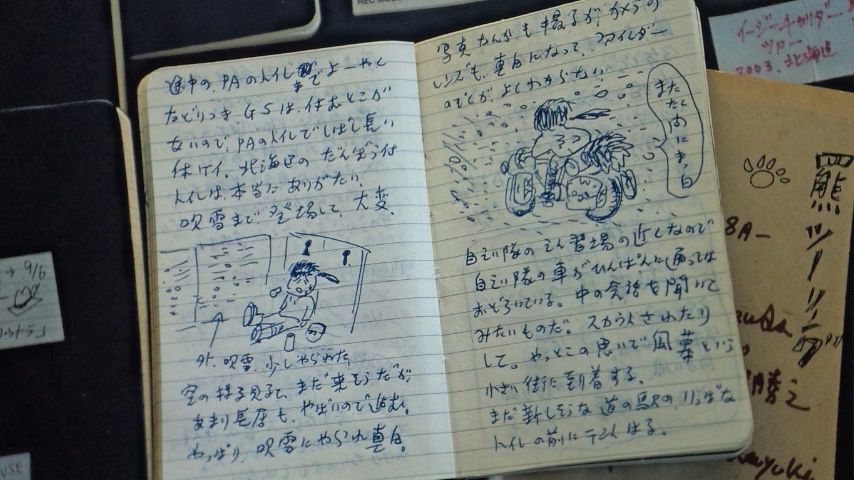 途中の、PAのトイレまでよーやく
たどりつき GSは、休むとこが
ないので、PAのトイレでしばし長い
休ケイ。北海道の だんぼう付
トイレは、本当に ありがたい。
吹雪まで、登場して、大変。
外、吹雪。少しやられた
空の様子見て、まだ来そうだが、
あまり長居も、やばいので進む。
やっぱり、吹雪にやられ真白。
写真なんかも撮るが、カメラの
レンズも、真白になって、ファインダー
のぞくが、よくわからない
またたく内にま、白
自えい隊のえん習場の近くなので
自えい隊の車がひんぱんに通っては
おどろいている。中の会話も聞いて
みたいものだ。スカウトされたり
して。やっとこの思いで風蓮という
小さい街に到着する。
まだ新しそうな 道の駅の、りっぱな
トイレの前にテントはる。
イージーライダー
ツアー
2003.北海道
羆ツーリング
8A-
→ 9/6